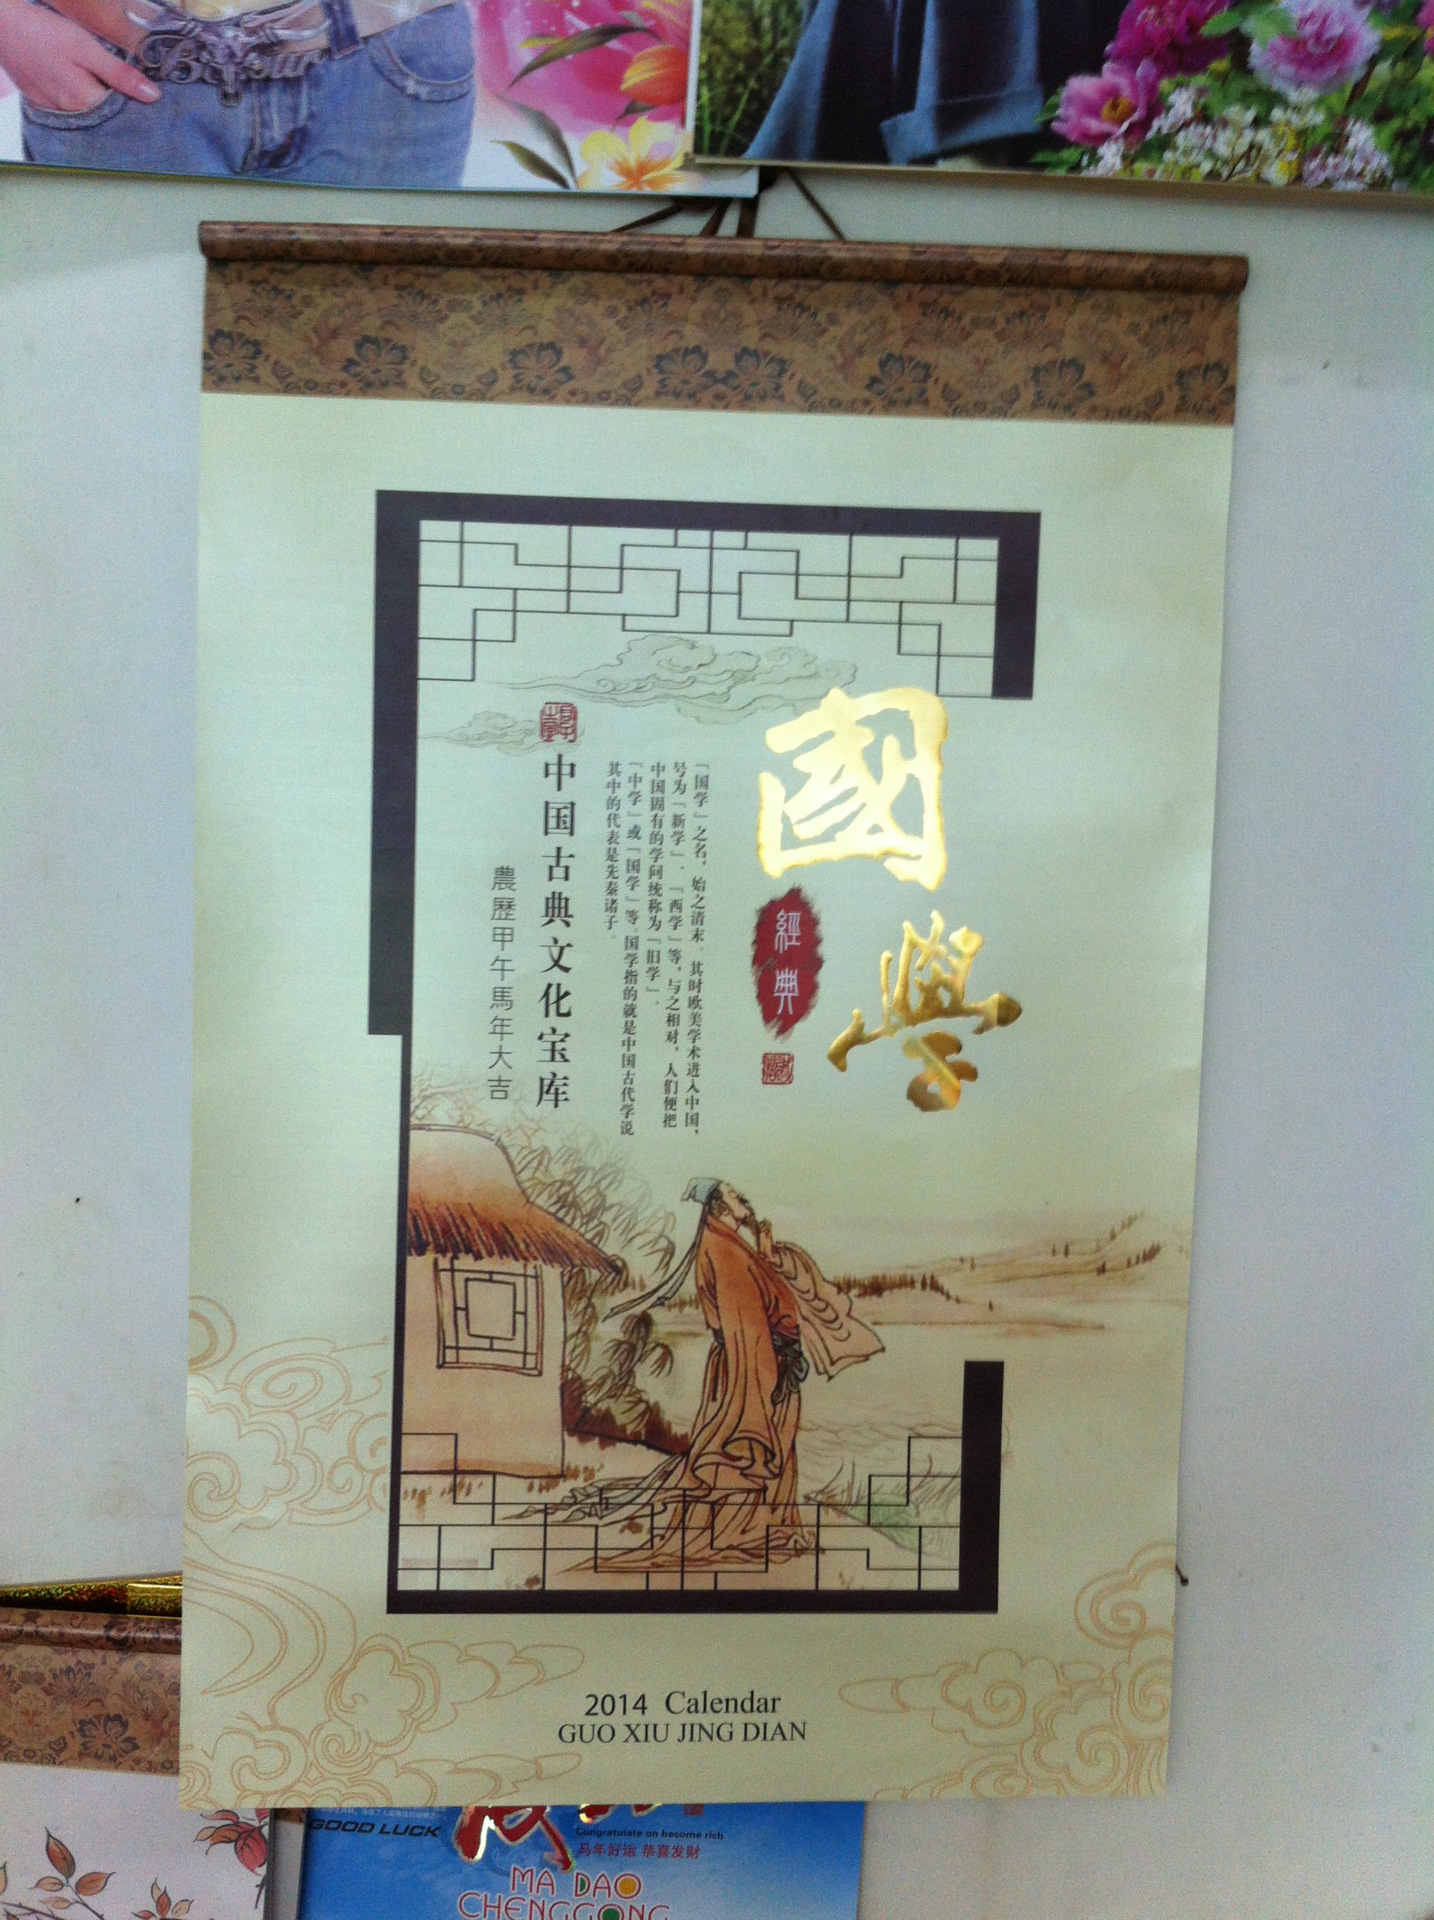 國學
經典
「国学」之名，始之清末。其时欧美学术进入中国，
号为「新学」、「西学」等，与之相对，人们便把
中国固有的学问统称为「旧学」、
「中学」或「国学」等。国学指的就是中国古代学说
其中的代表是先秦诸子。
中国古典文化宝库
農歷甲午馬年大吉
2014 Calendar
GUO XIU JING DIAN
GOOD LUCK
Congratulate on become rich
马年好运 恭喜发财
MA DAO
CHENGGONG